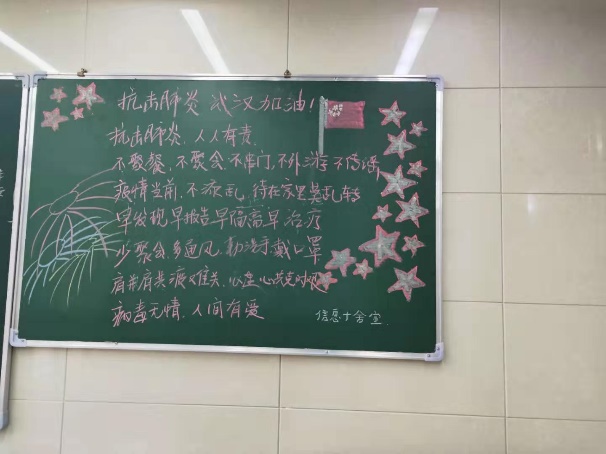 抗击肺炎 武汉加油！
抗击肺炎，人人有责
不聚餐，不聚会，不串门，不外游 不传谣
疫情当前，不添乱，待在家里莫乱转
早发现早报告早隔离早治疗
少聚会，多通风，勤洗手戴口罩
肩并肩共渡难关，心连心共克时艰
病毒无情，人间有爱
信息十舍宣